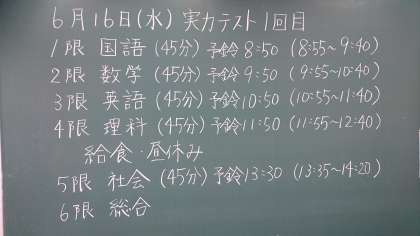 6月16日(水) 実力テスト1回目
1限 国語 (45分) 予鈴 8:50 (8:55～9:40)
2限 数学 (45分) 予鈴 9:50 (9:55～10:40)
3限 英語 (45分) 予鈴 10:50 (10:55～11:40)
4限 理科 (45分) 予鈴 11:50 (11:55～12:40)
給食・昼休み
5限 社会 (45分) 予鈴 13:30 (13:35～14:20)
6限 総合